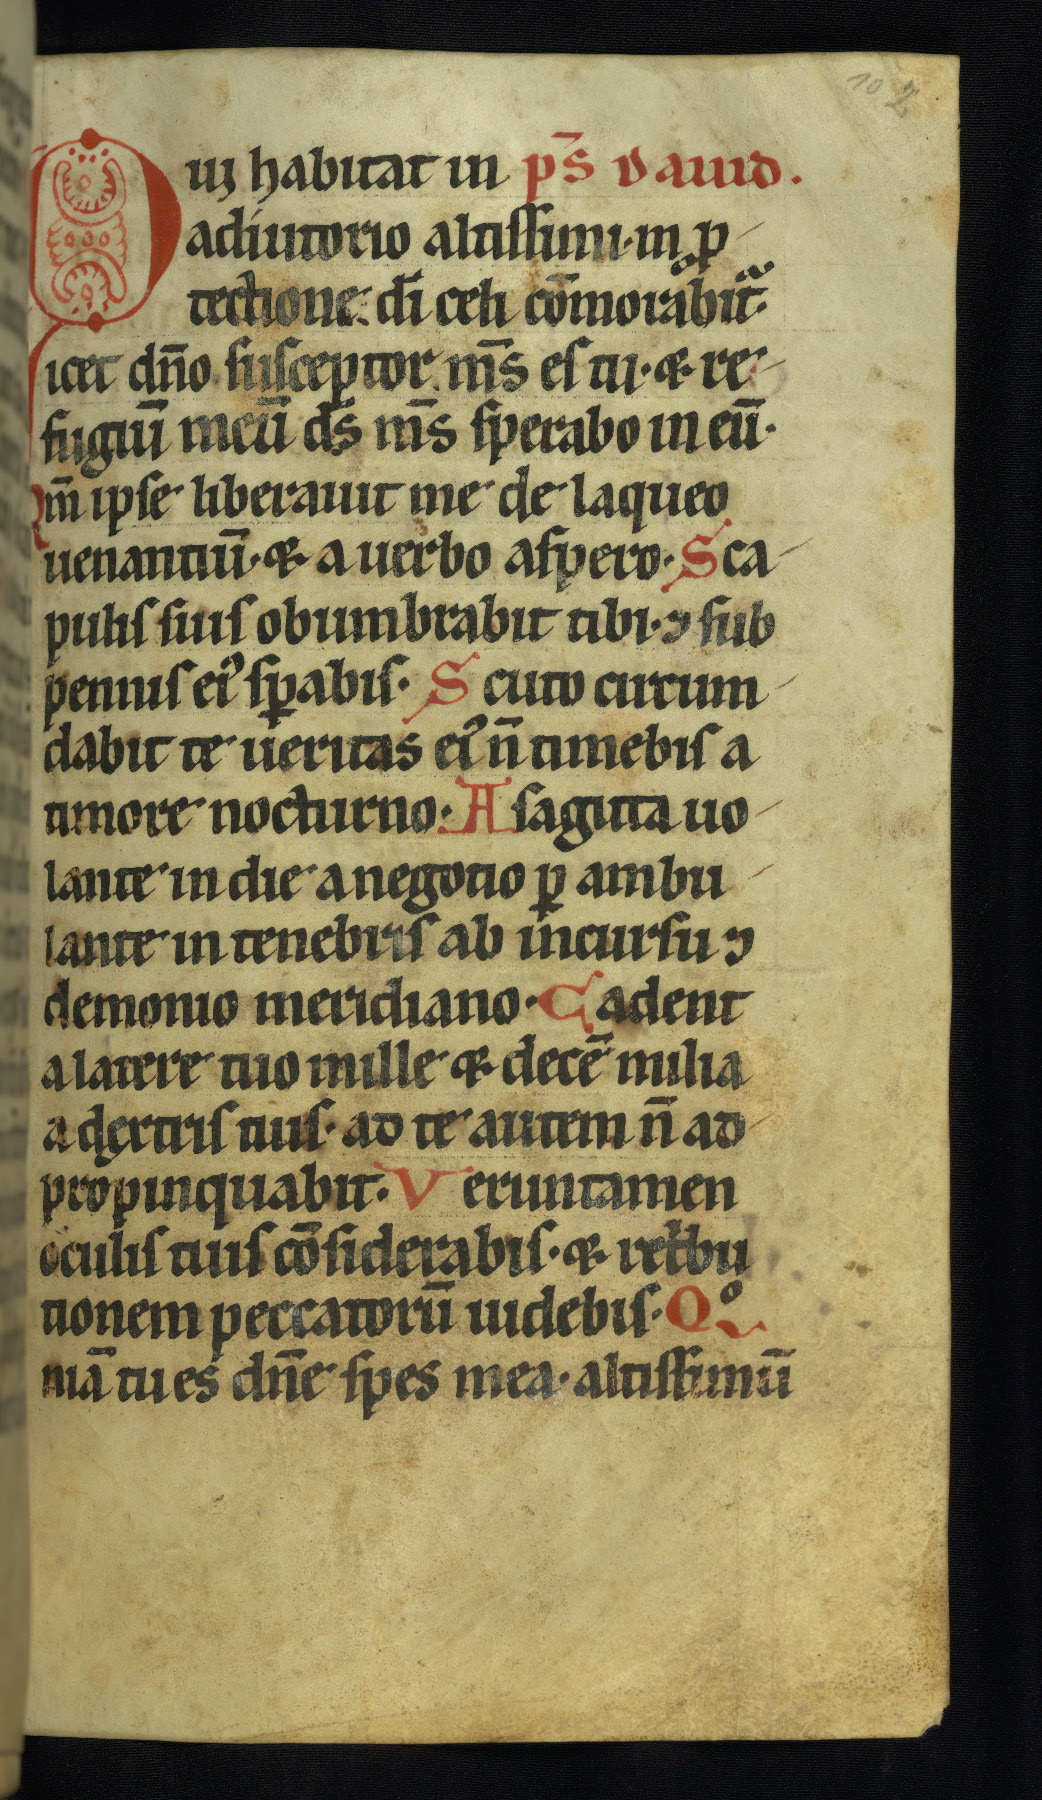 102
Qui habitat in ps̄ dauid.
adiutorio altissimi· in p
tectione dī celi cōmorabit᷑.
icet dn̄o susceptor m̄s es tu· ꝛ re
fugiū meū ds̄ m̄s sperabo in eū·
Qm̄ ipse liberauit me de laqueo
uenantiū· ꝛ a uerbo aspero· Sca
pulis suis obumbrabit tibi· ⁊ sub
pennis eiꝰ sꝑabis· Scuto circum
dabit te ueritas eiꝰ n̄ timebis a
timore nocturno· A sagitta uo
lante in die a negotio ꝑ ambu
lante in tenebris ab incursu ⁊
demonio meridiano· Cadent
a latere tuo mille ꝛ decē milia
a dextris tuis· ad te autem n̄ ad
propinquabit· Veruntamen
oculis tuis cōsiderabis· ꝛ ret'bu
tionem peccatorū uidebis· Qº
niā tu es dn̄e spes mea· altissimū